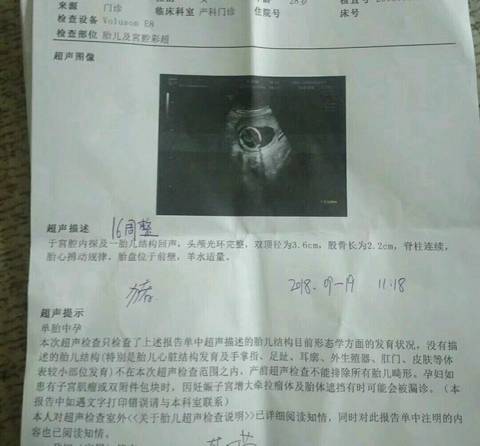 来源 门诊 临床科室 产科门诊 住院号
检查设备 Voluson E8 床号
检查部位 胎儿及宫腔彩超
超声图像
超声描述 16周整
于宫腔内探及一胎儿结构回声，头颅光环完整，双顶径为3.6cm，股骨长为2.2cm，脊柱连续，
胎心搏动规律。胎盘位于前壁，羊水适量。
2018.09-19 11:18
超声提示
单胎中孕
本次超声检查只检查了上述报告单中超声描述的胎儿结构目前形态学方面的发育状况，没有描
述的胎儿结构(特别是胎儿心脏结构发育及手掌指、足趾、耳廓、外生殖器、肛门、皮肤等体
表较小部位发育)不在本次超声检查范围之内。产前超声检查不能排除所有胎儿畸形。孕妇如
患有子宫肌瘤或双附件包块时，因妊娠子宫增大牵拉瘤体及胎体遮挡有时可能会被漏诊。(本
报告中如遇文字打印错误请与本科室联系)
本人对超声检查室外<<关于胎儿超声检查说明>>已详细阅读知情，同时对此报告单中注明的内
容也已阅读知情。